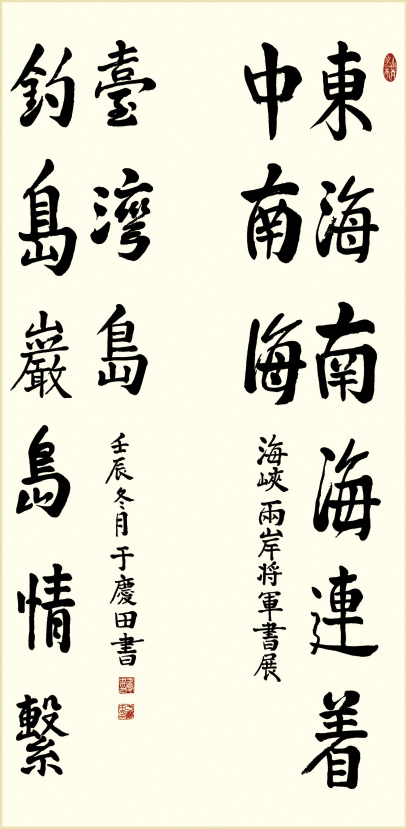 東海南海連着
中南海
海峽兩岸将軍書展
釣島巌島情繫
臺灣島
壬辰冬月于慶田書